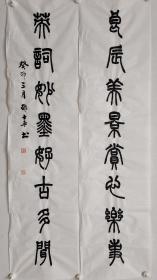 良辰美景賞心樂事
茶詞妙墨好古多聞
癸卯三月
書